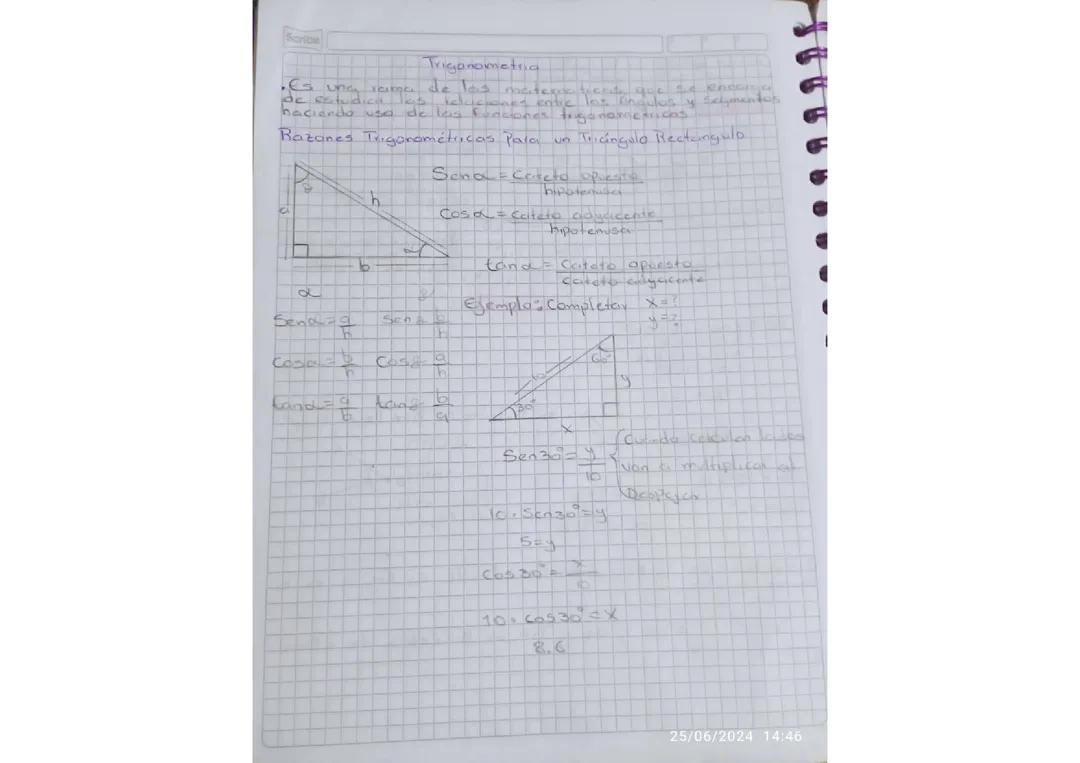 Scribe
Trigonometria
• Es una rama de las matematicas que se encarga
de estudiar las relaciones entre los ángulos y segmentos
haciendo uso de las funciones trigonometricas
Razones Trigonométricas Para un Triángulo Rectángulo
Senα = Cateto opuesto
hipotenusa
Cosα = Cateto adyacente
hipotenusa
tanα = Cateto opuesto
cateto adyacente
a
h
α
b
α
Ejemplo: Completar x=?
y=?
Senα = a/h Sen b/h
Cosα = b/h Cos a/h
tanα = a/b tan b/a
10
60°
30°
y
x
Sen30° = y/10
Cuando calculan lados
van a multiplicar al
10 · Sen30° = y
5 = y
Cos30° = x/10
10 · Cos30° = x
8.6
25/06/2024 14:46